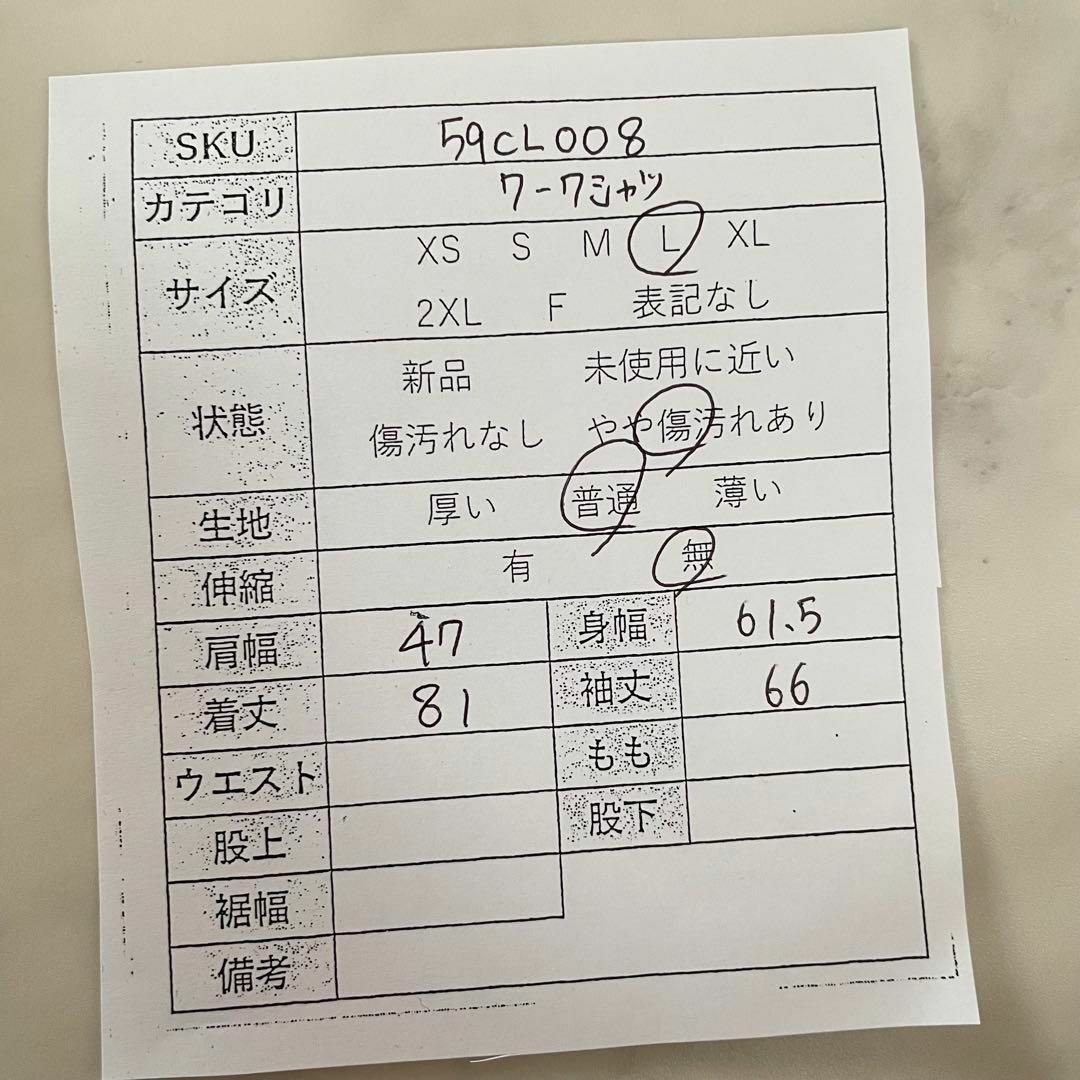 SKU 59CL008
カテゴリ ワークシャツ
サイズ XS S M L XL
2XL F 表記なし
状態 新品 未使用に近い
傷汚れなし やや傷汚れあり
生地 厚い 普通 薄い
伸縮 有 無
肩幅 47 身幅 61.5
着丈 81 袖丈 66
ウエスト もも
股上 股下
裾幅
備考